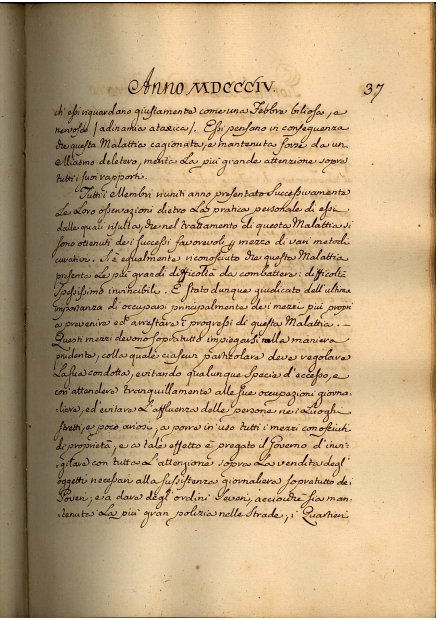 Anno MDCCCIV. 37
ch'essi riguardano giustamente come una Febbre biliosa, e
nervosa / adinamia ataxica /. Essi pensano in conseguenza
che questa Malattia cagionata, e mantenuta forse da un
Miasmo deletero, merita La più grande attenzione sopra
tutti i suoi rapporti.
Tutti i Membri riuniti anno presentato Successivamente
Le Loro osservazioni dietro La pratica personale di essi
dalle quali risulta che nel trattamento di questa Malattia si
sono ottenuti dei successi favorevoli mezzo di vari metodi
curativi. Si è equalmente riconosciuto che questa Malattia
presenta Le più grandi difficoltà da combattere: difficoltà
Spessissimo invincibile. È stato dunque giudicato dell'ultima
importanza di occuparsi principalmente dei mezzi più propri
a prevenire ed arrestare i progressi di questa Malattia. --
Questi mezzi devono sopratutto impiegarsi nelle maniera
prudente, colla quale ciascun particolare deve regolare
La sua condotta, evitando qualunque Specie d'eccesso, e
con attendere tranquillamente alle sue occupazioni giorna=
liere, ed evitare L'affluenza delle persone nei Luoghi
stretti, e poco ariosi, a porre in uso tutti i mezzi conosciuti
di proprietà, e a tale effetto è pregato il Governo d'invi=
gilare con tutta L'attenzione sopra La vendita degl'
oggetti necessari alla sussistenza giornaliera sopratutto dei
Poveri, e a dare degl'ordini Severi, acciocché sia man=
tenuta La più gran polizia nelle Strade, i Quartieri